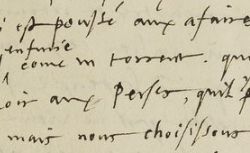 est poussé aux afaire
enfunie
come un torrent. qu
oir aux Perses, qu'il
mais nous choisissons